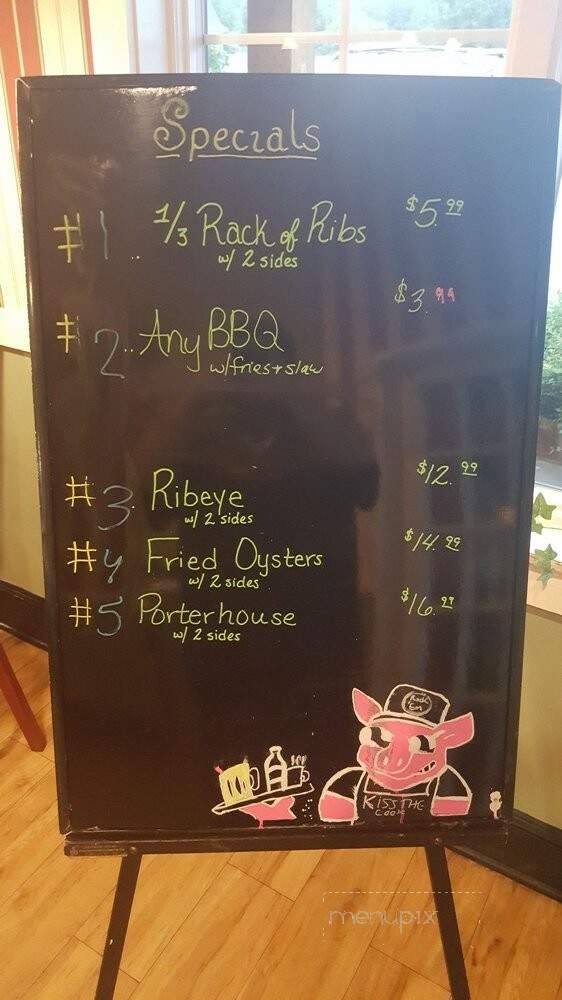 Specials
#1 .. 1/3 Rack of Ribs $5.99
w/ 2 sides
#2.. Any BBQ $3.99
w/fries + slaw
#3 Ribeye $12.99
w/ 2 sides
#4 Fried Oysters $14.99
w/ 2 sides
#5 Porterhouse $16.99
w/ 2 sides
Rack 'Em
KISS THE
COOK
menupix